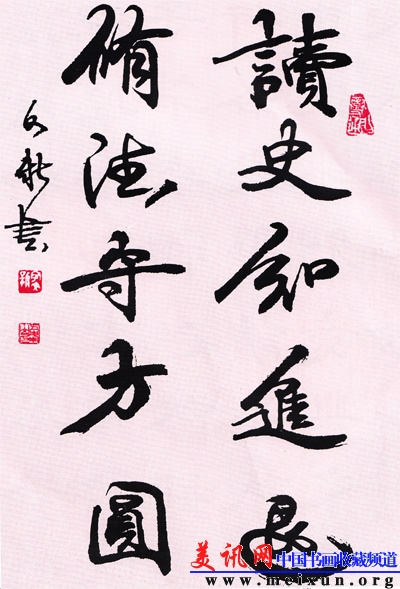 讀史知進退
脩德守方圓
書
美讯网中国书画收藏频道
www.meixun.org